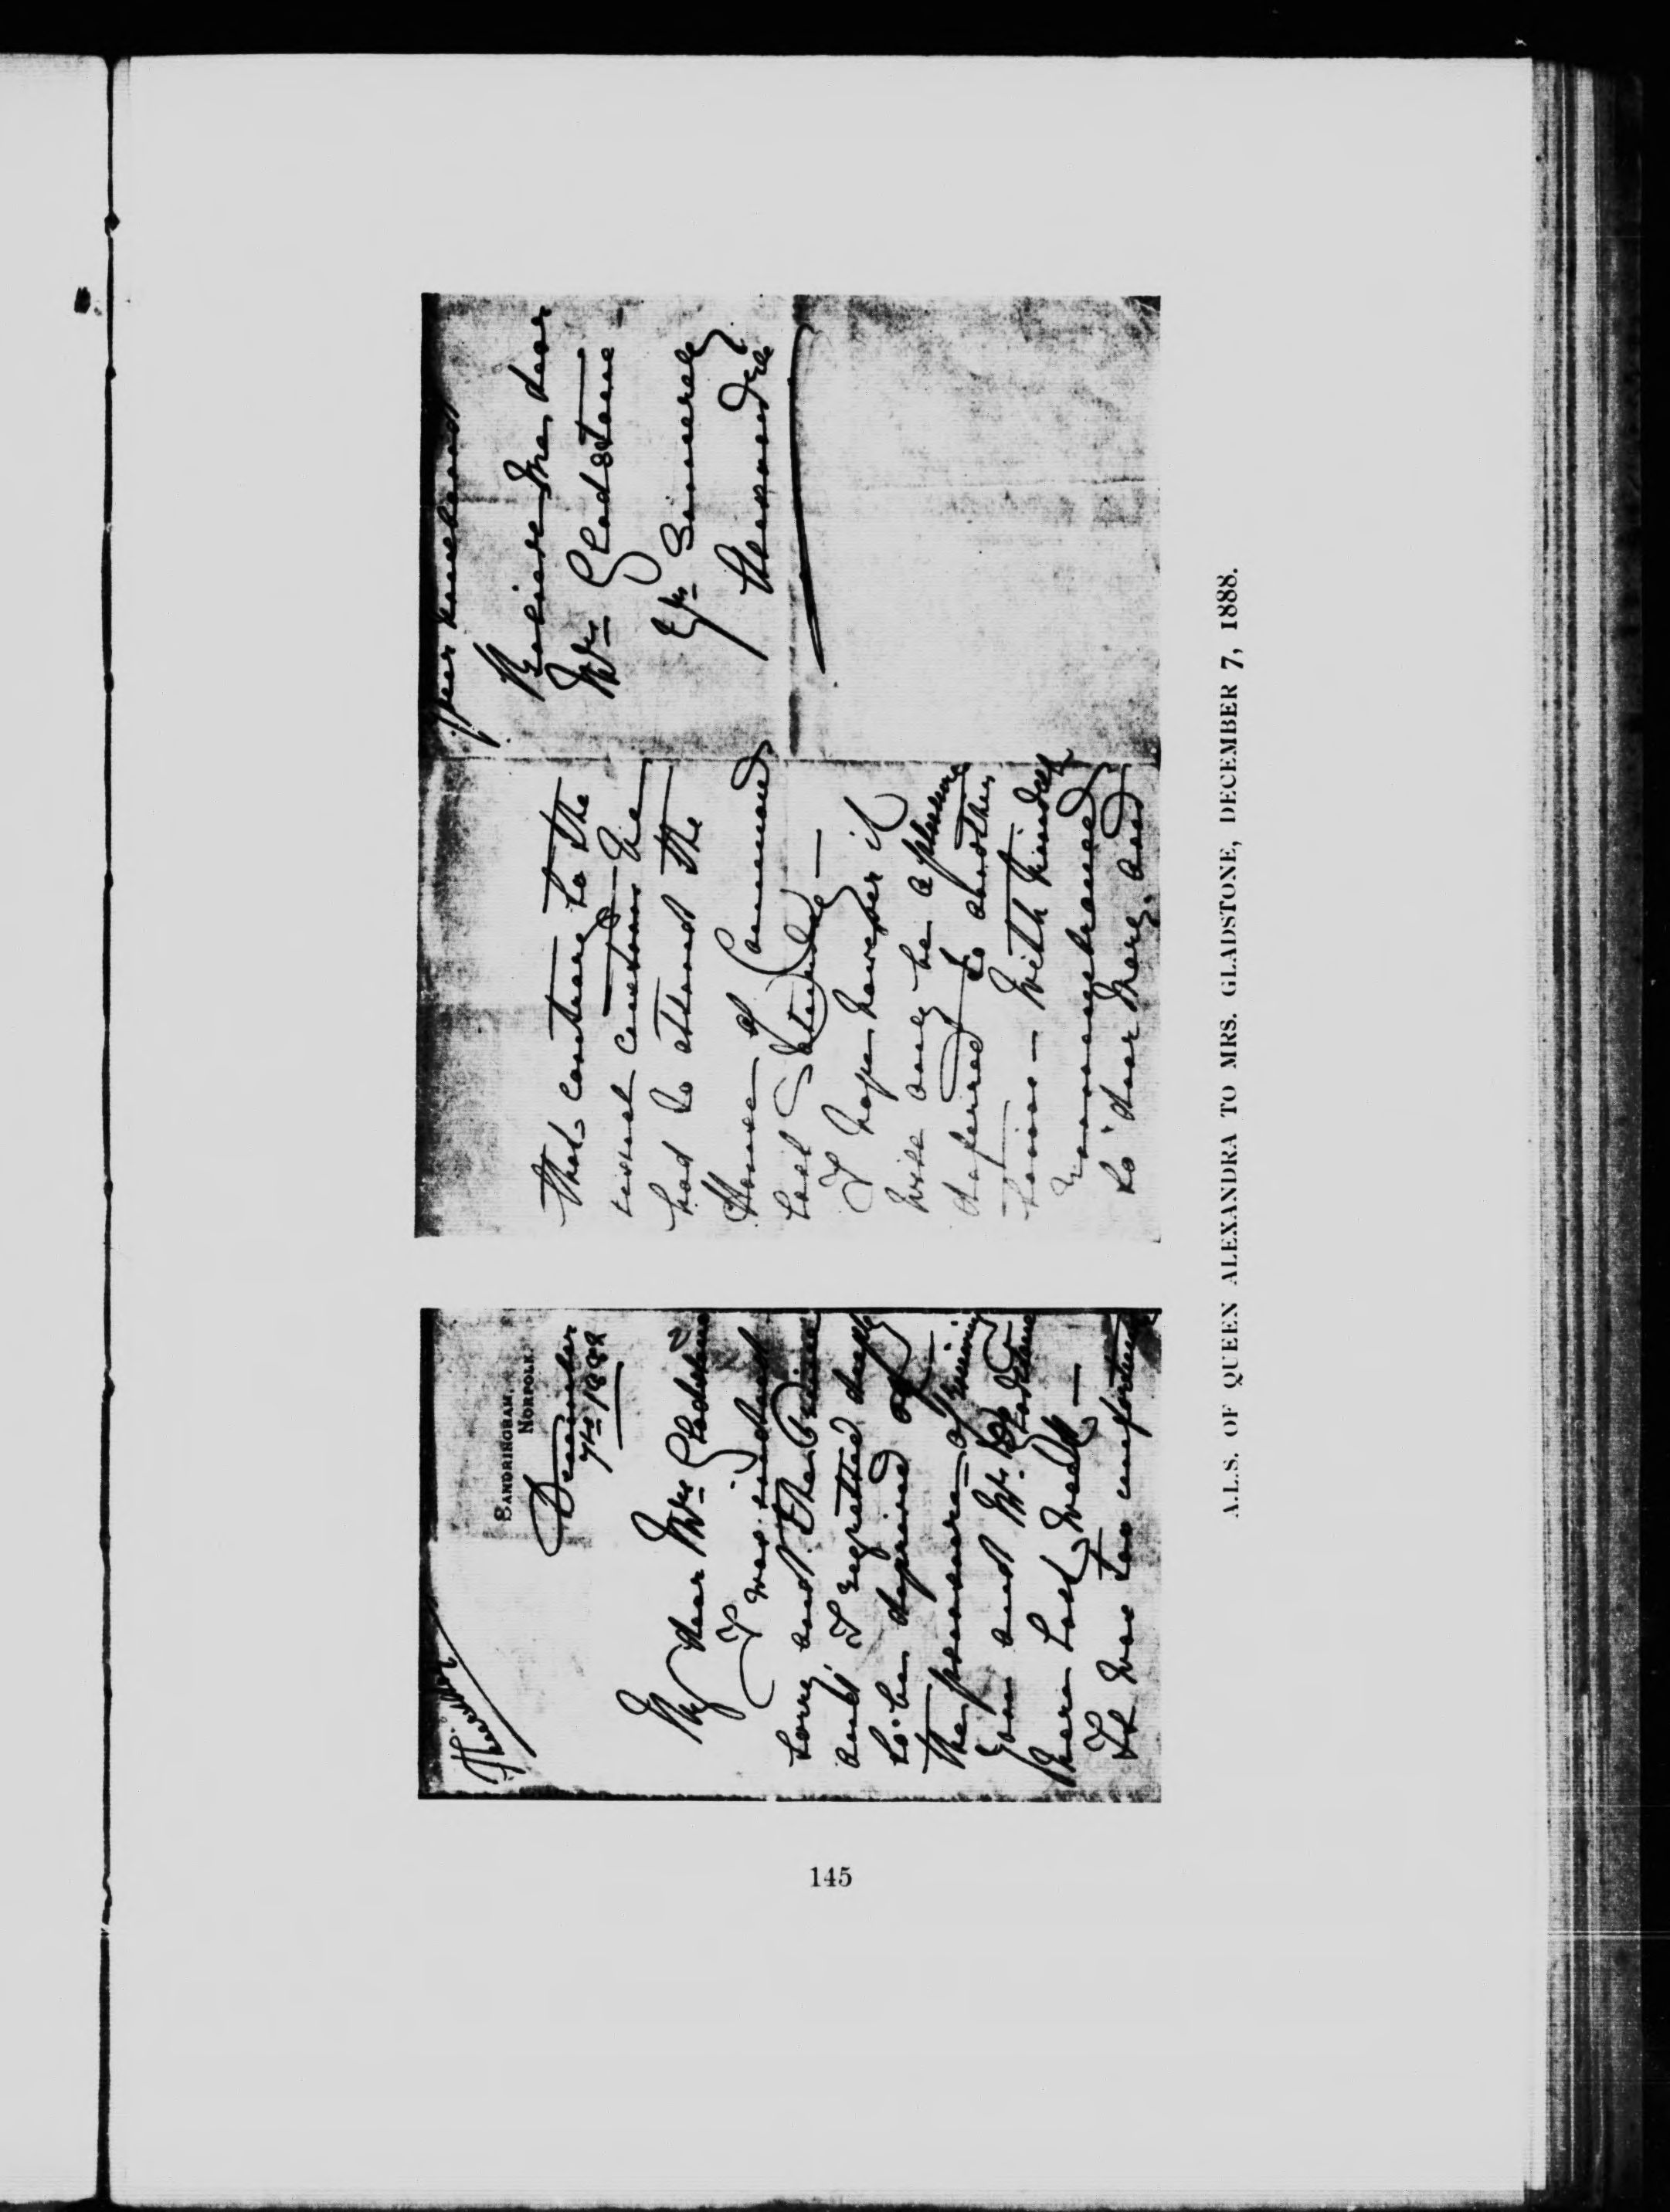 SANDRINGHAM,
NORFOLK.
December
7th 1888
My dear Mrs Gladstone
I was indeed
sorry and the Prince
and I regretted deeply
to be deprived of
the pleasure of seeing
you and Mr. Gladstone
here last week —
It was too unfortunate
that contrary to the
usual custom he
had to attend the
House of Commons
last Saturday —
I hope however it
will only be a pleasure
deferred to another
time — With kindest
remembrances
to dear Mary, and
your husband
Believe me, dear
Mrs Gladstone
Yrs Sincerely
Alexandra
A.L.S. OF QUEEN ALEXANDRA TO MRS. GLADSTONE, DECEMBER 7, 1888.
145